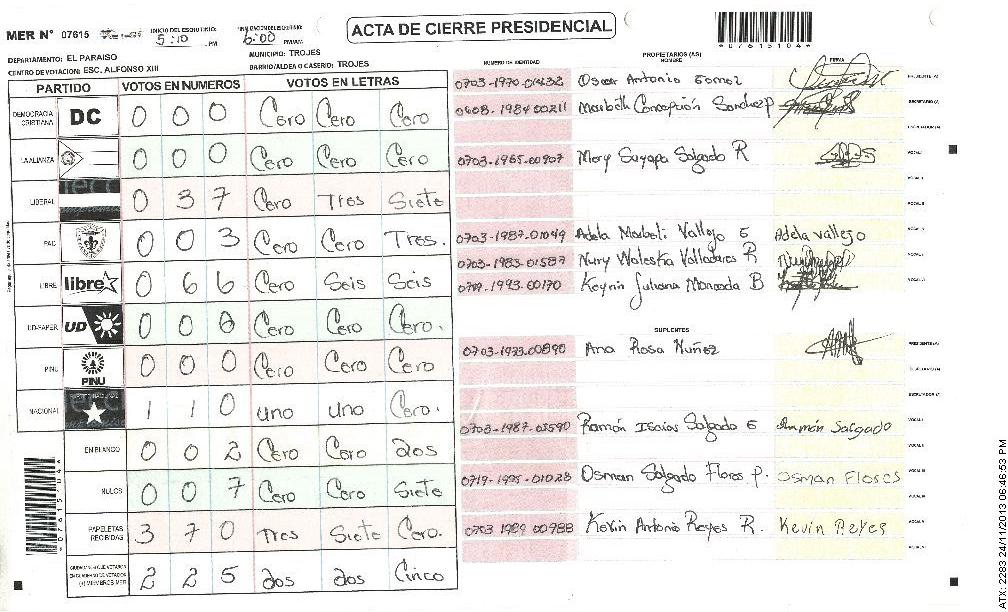 ACTA DE CIERRE PRESIDENCIAL
MER N° 07615
INICIO DEL ESCRUTINIO: 5:10 PM
FINALIZACION DEL ESCRUTINIO: 6:00 PM/AM
*07615104*
DEPARTAMENTO: EL PARAISO
MUNICIPIO: TROJES
CENTRO DE VOTACION: ESC. ALFONSO XIII
BARRIO/ALDEA O CASERIO: TROJES
PARTIDO VOTOS EN NUMEROS VOTOS EN LETRAS
DEMOCRACIA CRISTIANA DC 0 0 0 Cero Cero Cero
LA ALIANZA 0 0 0 Cero Cero Cero
LIBERAL 0 3 7 Cero Tres Siete
PAC 0 0 3 Cero Cero Tres.
LIBRE libre 0 6 6 Cero Seis Seis
UD-FAPER UD 0 0 0 Cero Cero Cero.
PINU PINU 0 0 0 Cero Cero Cero
NACIONAL 1 1 0 uno uno Cero.
EN BLANCO 0 0 2 Cero Cero dos
NULOS 0 0 7 Cero Cero Siete
PAPELETAS RECIBIDAS 3 7 0 Tres Siete Cero.
CIUDADANOS QUE VOTARON EN CUADERNO DE VOTACION (+) MIEMBROS MER 2 2 5 dos dos Cinco
*07615104*
NUMERO DE IDENTIDAD PROPIETARIOS (AS) NOMBRE FIRMA
0703-1970-01432 Oscar Antonio Gomez PRESIDENTE (A)
0608-1984-00211 Maribeth Concepción Sanchez P SECRETARIO (A)
ESCRUTADOR (A)
0703-1965-00907 Mery Suyapa Salgado R VOCAL I
VOCAL II
VOCAL III
0703-1987-01049 Adela Maribeti Vallejo G Adela Vallejo
0703-1983-01587 Nury Waleska Valladares R
0704-1993-00170 Keyrin Juliana Moncada B
SUPLENTES
0703-1973-00890 Ana Rosa Nuñez PRESIDENTE (A)
SECRETARIO (A)
ESCRUTADOR (A)
0703-1987-03590 Ramón Isaias Salgado G Ramón Salgado VOCAL I
VOCAL II
0719-1995-01028 Osman Salgado Flores P. Osman Flores VOCAL III
0703 1989 00988 Kevin Antonio Reyes R. Kevin Reyes
ATX: 2283 24/11/2013 06:46:53 PM